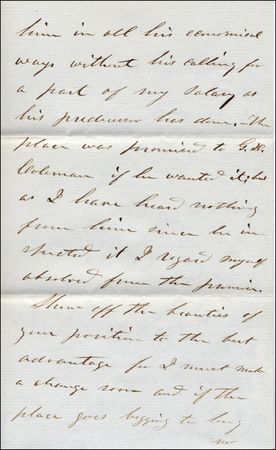 him in all his economical
ways without his calling for
a part of my salary as
his predecessor has done. The
place was promised to G. D.
Coleman if he wanted it; but
as I have heard nothing
from him since he in
spected it I regard myself
absolved from the promise.
Show off the beauties of
your position to the best
advantage for I must make
a change soon and if the
place goes begging too long